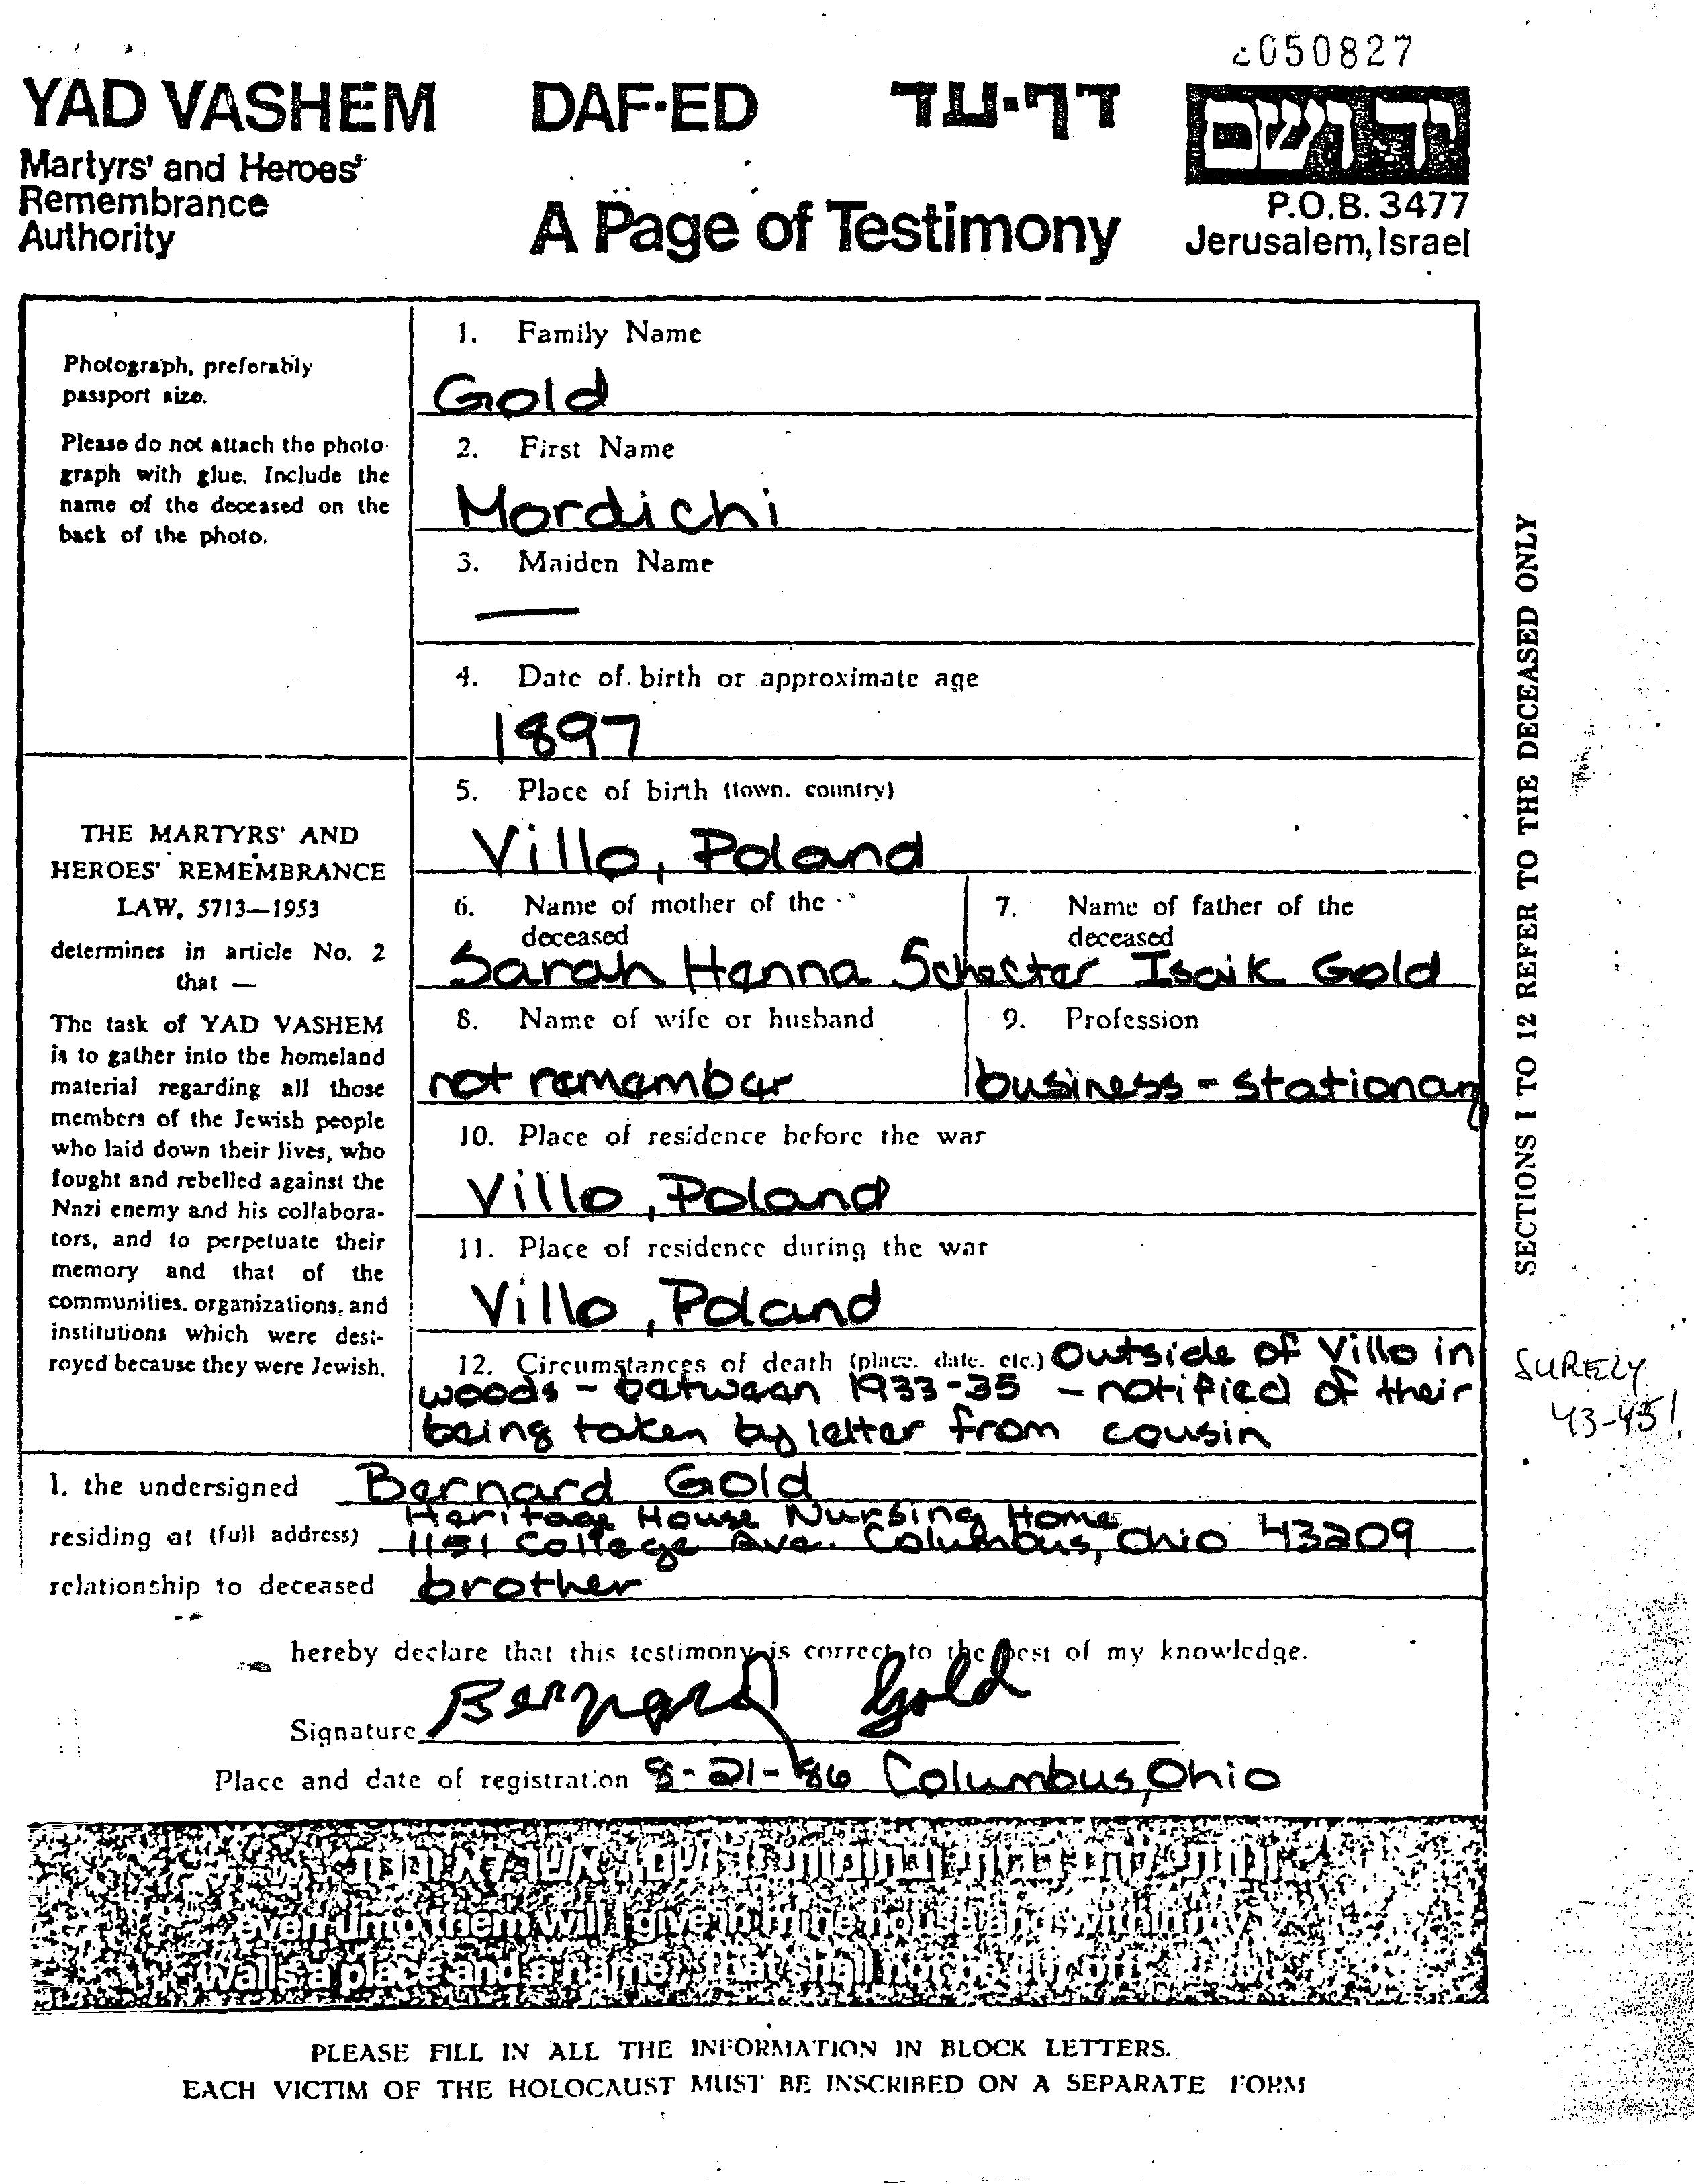 050827
YAD VASHEM DAF-ED דף-עד ידושם
Martyrs' and Heroes'
Remembrance
Authority
A Page of Testimony
P.O.B. 3477
Jerusalem, Israel
Photograph, preferably
passport size.
Please do not attach the photo-
graph with glue. Include the
name of the deceased on the
back of the photo.
1. Family Name
Gold
2. First Name
Mordichi
3. Maiden Name
—
4. Date of birth or approximate age
1897
THE MARTYRS' AND
HEROES' REMEMBRANCE
LAW, 5713—1953
determines in article No. 2
that —
The task of YAD VASHEM
is to gather into the homeland
material regarding all those
members of the Jewish people
who laid down their lives, who
fought and rebelled against the
Nazi enemy and his collabora-
tors, and to perpetuate their
memory and that of the
communities, organizations, and
institutions which were dest-
royed because they were Jewish.
5. Place of birth (town, country)
Villo, Poland
6. Name of mother of the
deceased
Sarah Hanna Schecter
7. Name of father of the
deceased
Isaik Gold
8. Name of wife or husband
not remember
9. Profession
business - stationary
10. Place of residence before the war
Villo, Poland
11. Place of residence during the war
Villo, Poland
12. Circumstances of death (place, date, etc.) Outside of Villo in
woods - between 1933-35 - notified of their
being taken by letter from cousin
SECTIONS 1 TO 12 REFER TO THE DECEASED ONLY
SURELY
43-45!
I, the undersigned Bernard Gold
Heritage House Nursing Home
residing at (full address) 1151 College Ave. Columbus, Ohio 43209
relationship to deceased brother
hereby declare that this testimony is correct to the best of my knowledge.
Signature Bernard Gold
Place and date of registration 8-21-86 Columbus, Ohio
even unto them will I give in mine house and within my
walls a place and a name... that shall not be cut off
PLEASE FILL IN ALL THE INFORMATION IN BLOCK LETTERS.
EACH VICTIM OF THE HOLOCAUST MUST BE INSCRIBED ON A SEPARATE FORM